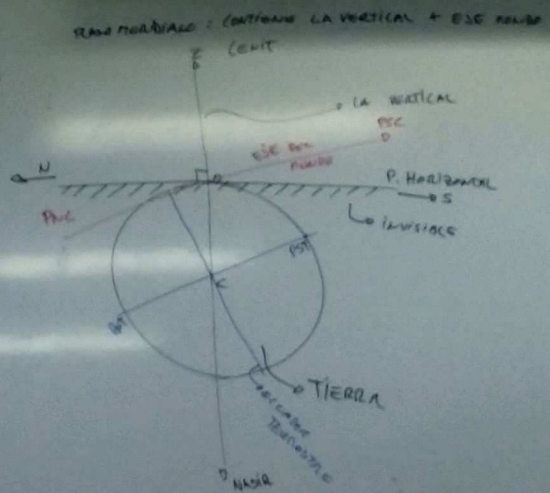 PLANO MERIDIANO : CONTIENE LA VERTICAL + EJE MUNDO
Z
CENIT
LA VERTICAL
PSC
EJE DEL
MUNDO
N
P. HORIZONTAL
S
INVISIBLE
PNC
PST
C
TIERRA
ECUADOR
TERRESTRE
NADIR